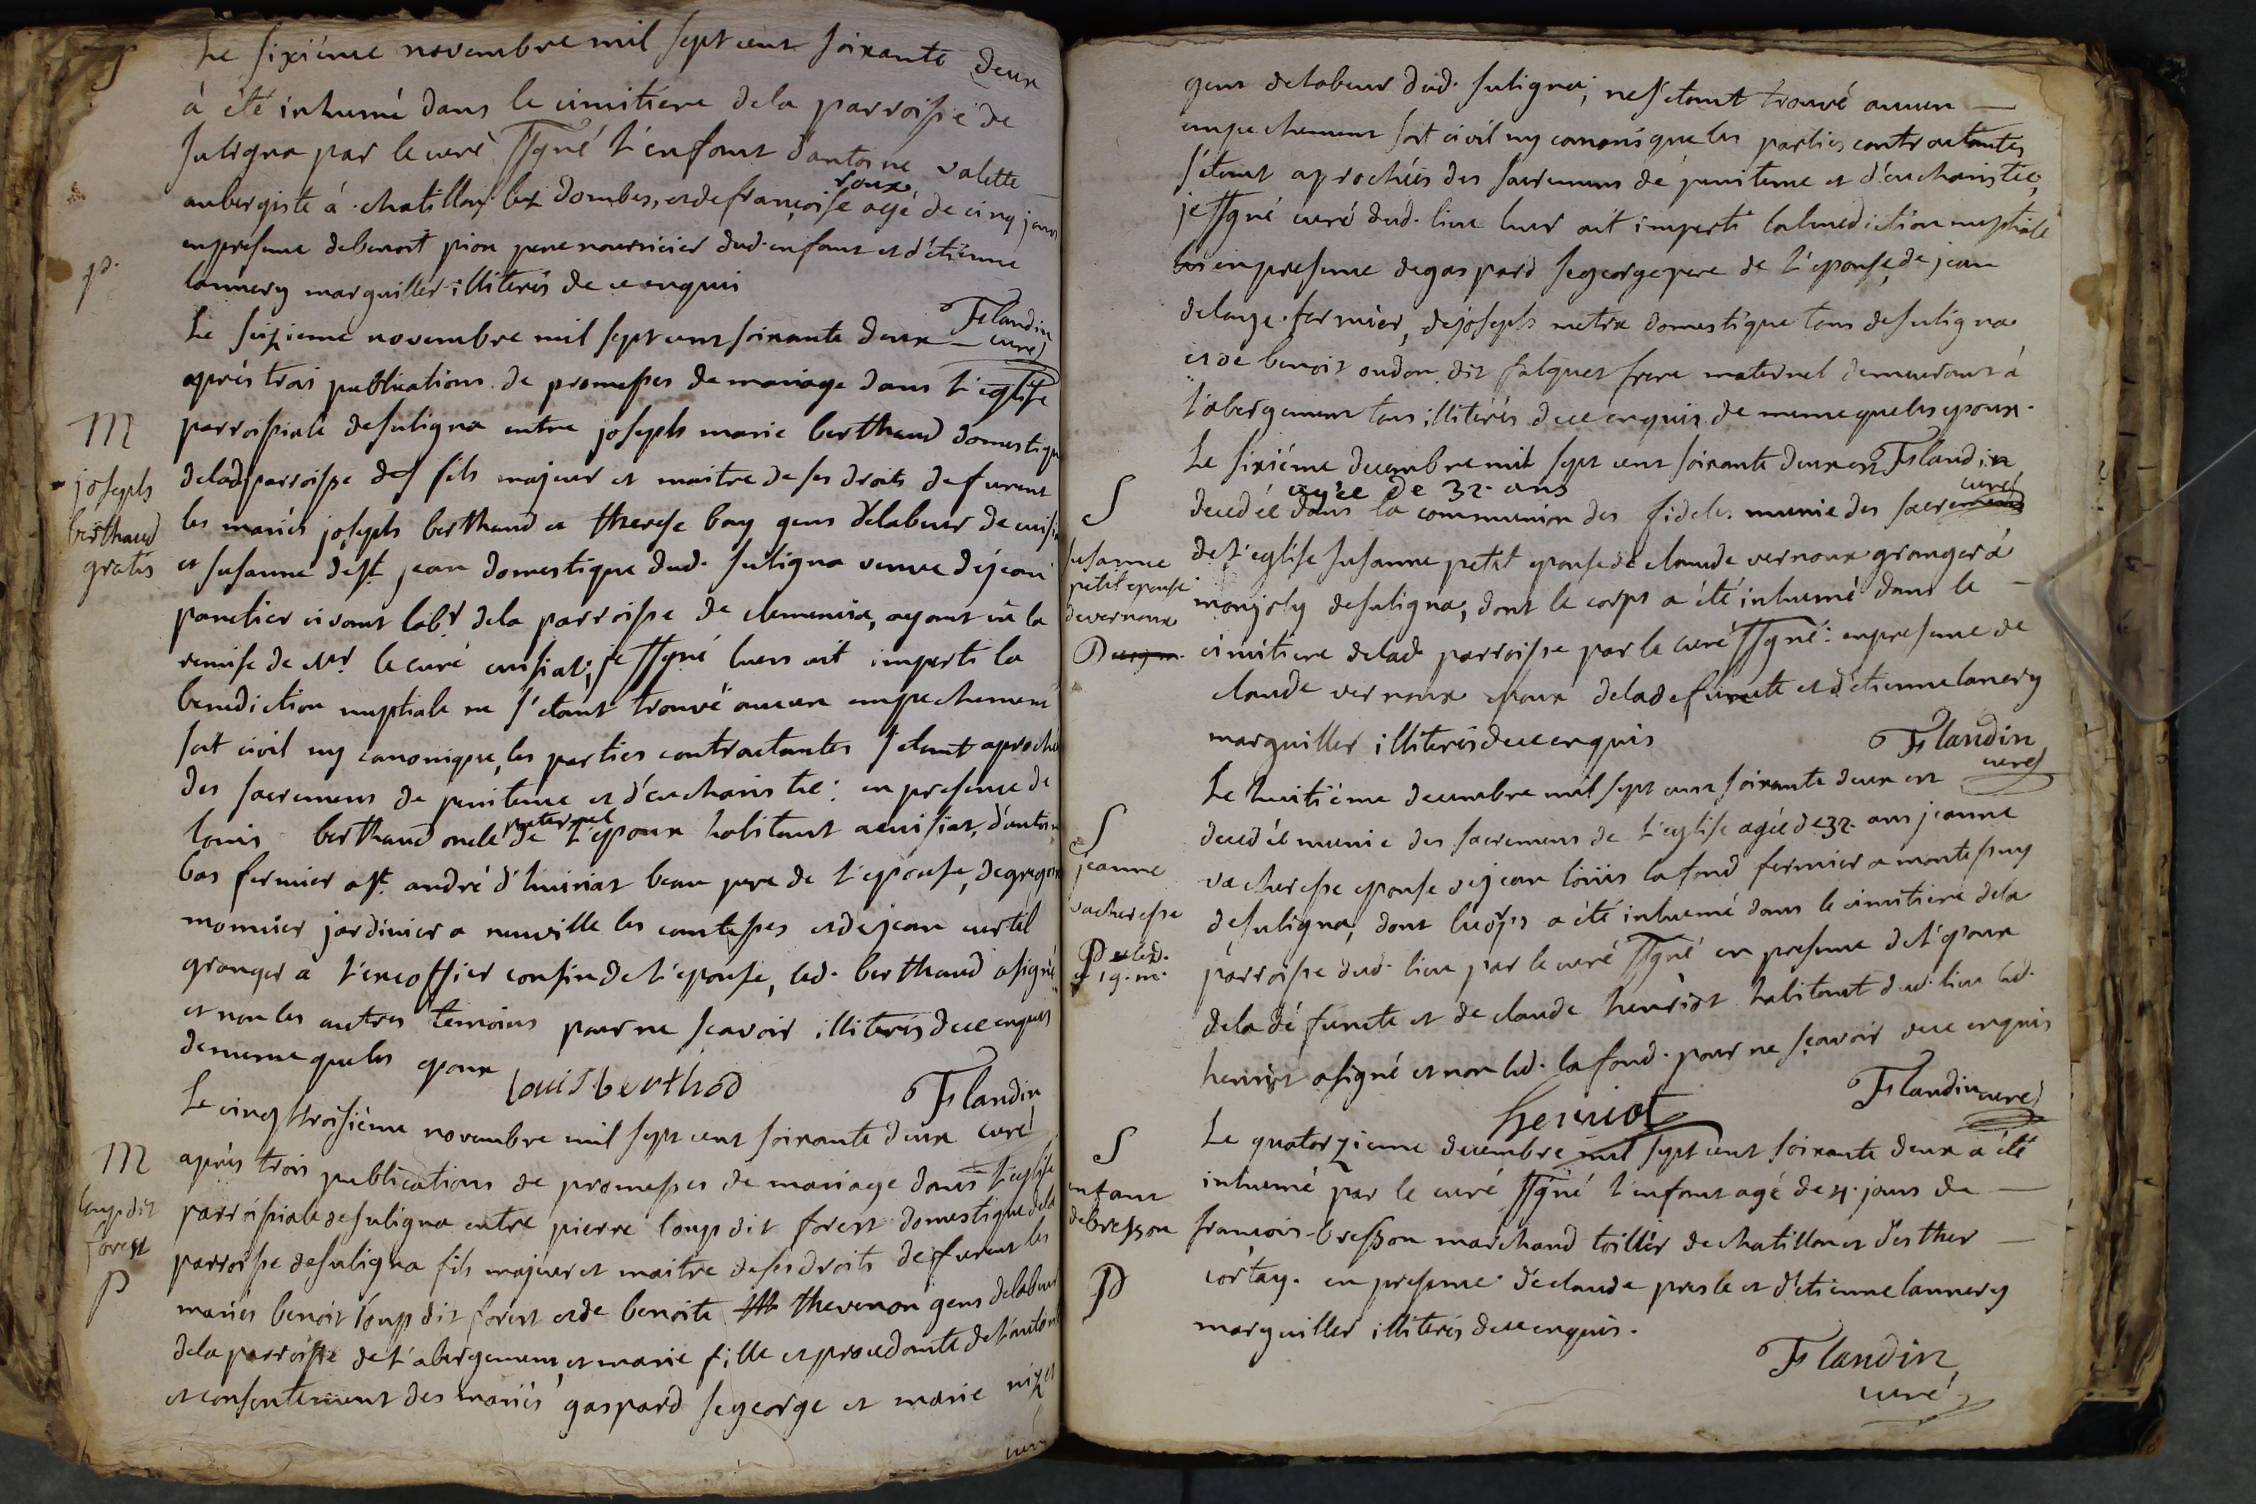 Le sixiéme novembre mil sept cent soixante deux
à été inhumé dans le cimitiere dela parroisse de
Suligna par le curé ssgné l'enfant d'antoine valette
aubergiste à chatillon les Dombes, et de françoise roux agé de cinq jours
en presence de benoit pion pere nourricier dud. enfant et d'etienne
lannery marguiller illiterés de ce enquis
P.
Flandin
curé
Le sixieme novembre mil sept cent soixante deux
après trois publications de promesses de mariage dans l'eglise
M
joseph
berthaud
gratis
parroissiale de suligna entre joseph marie berthaud domestique
delad parroisse des fils majeur et maitre de ses droits defurent
les mariés joseph berthaud et therese bay gens delabeur de cuisia
et susanne de st. jean domestique dud. suligna veuve de jean
panetier vivant labr dela parroisse de clemencia, ayant vû la
remise de Mr. le curé cuisiat; je ssgné leurs ait imparti la
benediction nuptiale ne s'etant trouvé aucun empechement
soit civil ny canonique, les parties contractantes s'etant aproché
des sacremens de penitence et d'eucharistie: en presence de
louis berthaud oncle paternel de l'epoux habitant a cuisiat, d'antoine
bas fermier a st. andré d'huiriat beau pere de l'epouse, de gregoire
monnier jardinier a neuville les comtesses et de jean curtil
granger a l'encoffier cousin de l'epouse, led. berthaud a signé
et non les autres temoins pour ne sçavoir illiterés de ce enquis
de meme que les epoux
Louis berthod
Flandin
curé
Le vingt troisiéme novembre mil sept cent soixante deux
M
loup dit
forest
P
après trois publications de promesses de mariage dans l'eglise
parroissiale de suligna entre pierre loup dit forest domestique dela
parroisse de suligna fils majeur et maitre de ses droits defurent les
mariés benoit loup dit forest et de benoite thevenon gens delabeur
dela parroisse de l'abergement, et marie fille et procedante de l'autorité
et consentement des mariés gaspard segeorge et marie
gens delabeur dud. suligna; ne s'etant trouvé aucun
empechement soit civil ny canonique les parties contractantes
s'etant aprochées des sacremens de penitence et d'eucharistie,
je ssgné curé dud. lieu leur ait imparti la benediction nuptiale
en presence de gaspard segeorge pere de l'epouse, de jean
delaye fermier, de joseph metra domestique tous de suligna
et de benoit oudon dit falquet frere maternel demeurant à
l'abergement tous illiterés de ce enquis de meme que les epoux.
Flandin
curé
Le sixiéme decembre mil sept cent soixante deux est
S
susanne
petit epouse
de vernoux
decedée agée de 32. ans dans la communion des fideles munie des sacremens
de l'eglise susanne petit epouse de claude vernoux granger à
monjoly de suligna, dont le corps a été inhumé dans le
cimitiere delad parroisse par le curé ssgné: en presence de
claude vernoux epoux delad defunte et d'etienne lanery
marguiller illiterés de ce enquis
Flandin
curé
Le huitiéme decembre mil sept cent soixante deux est
S
jeanne
vacheresse
decedée munie des sacremens de l'eglise agée de 32. ans jeanne
vacheresse epouse de jean loüis lafond fermier a montessuy
de suligna, dont le corps a été inhumé dans le cimitiere dela
parroisse dud. lieu par le curé ssgné en presence de l'epoux
dela défunte et de claude henriot habitant dud. lieu led.
henriot a signé et non led. lafond. pour ne sçavoir de ce enquis
henriot
Flandin curé
Le quatorzieme decembre mil sept cent soixante deux a été
S
enfant
de bresson
P
inhumé par le curé ssgné l'enfant agé de 4. jours de
françois bresson marchand toillier de chatillon et d'esther
cortay. en presence de claude presle et d'etienne lannery
marguiller illiterés de ce enquis.
Flandin
curé